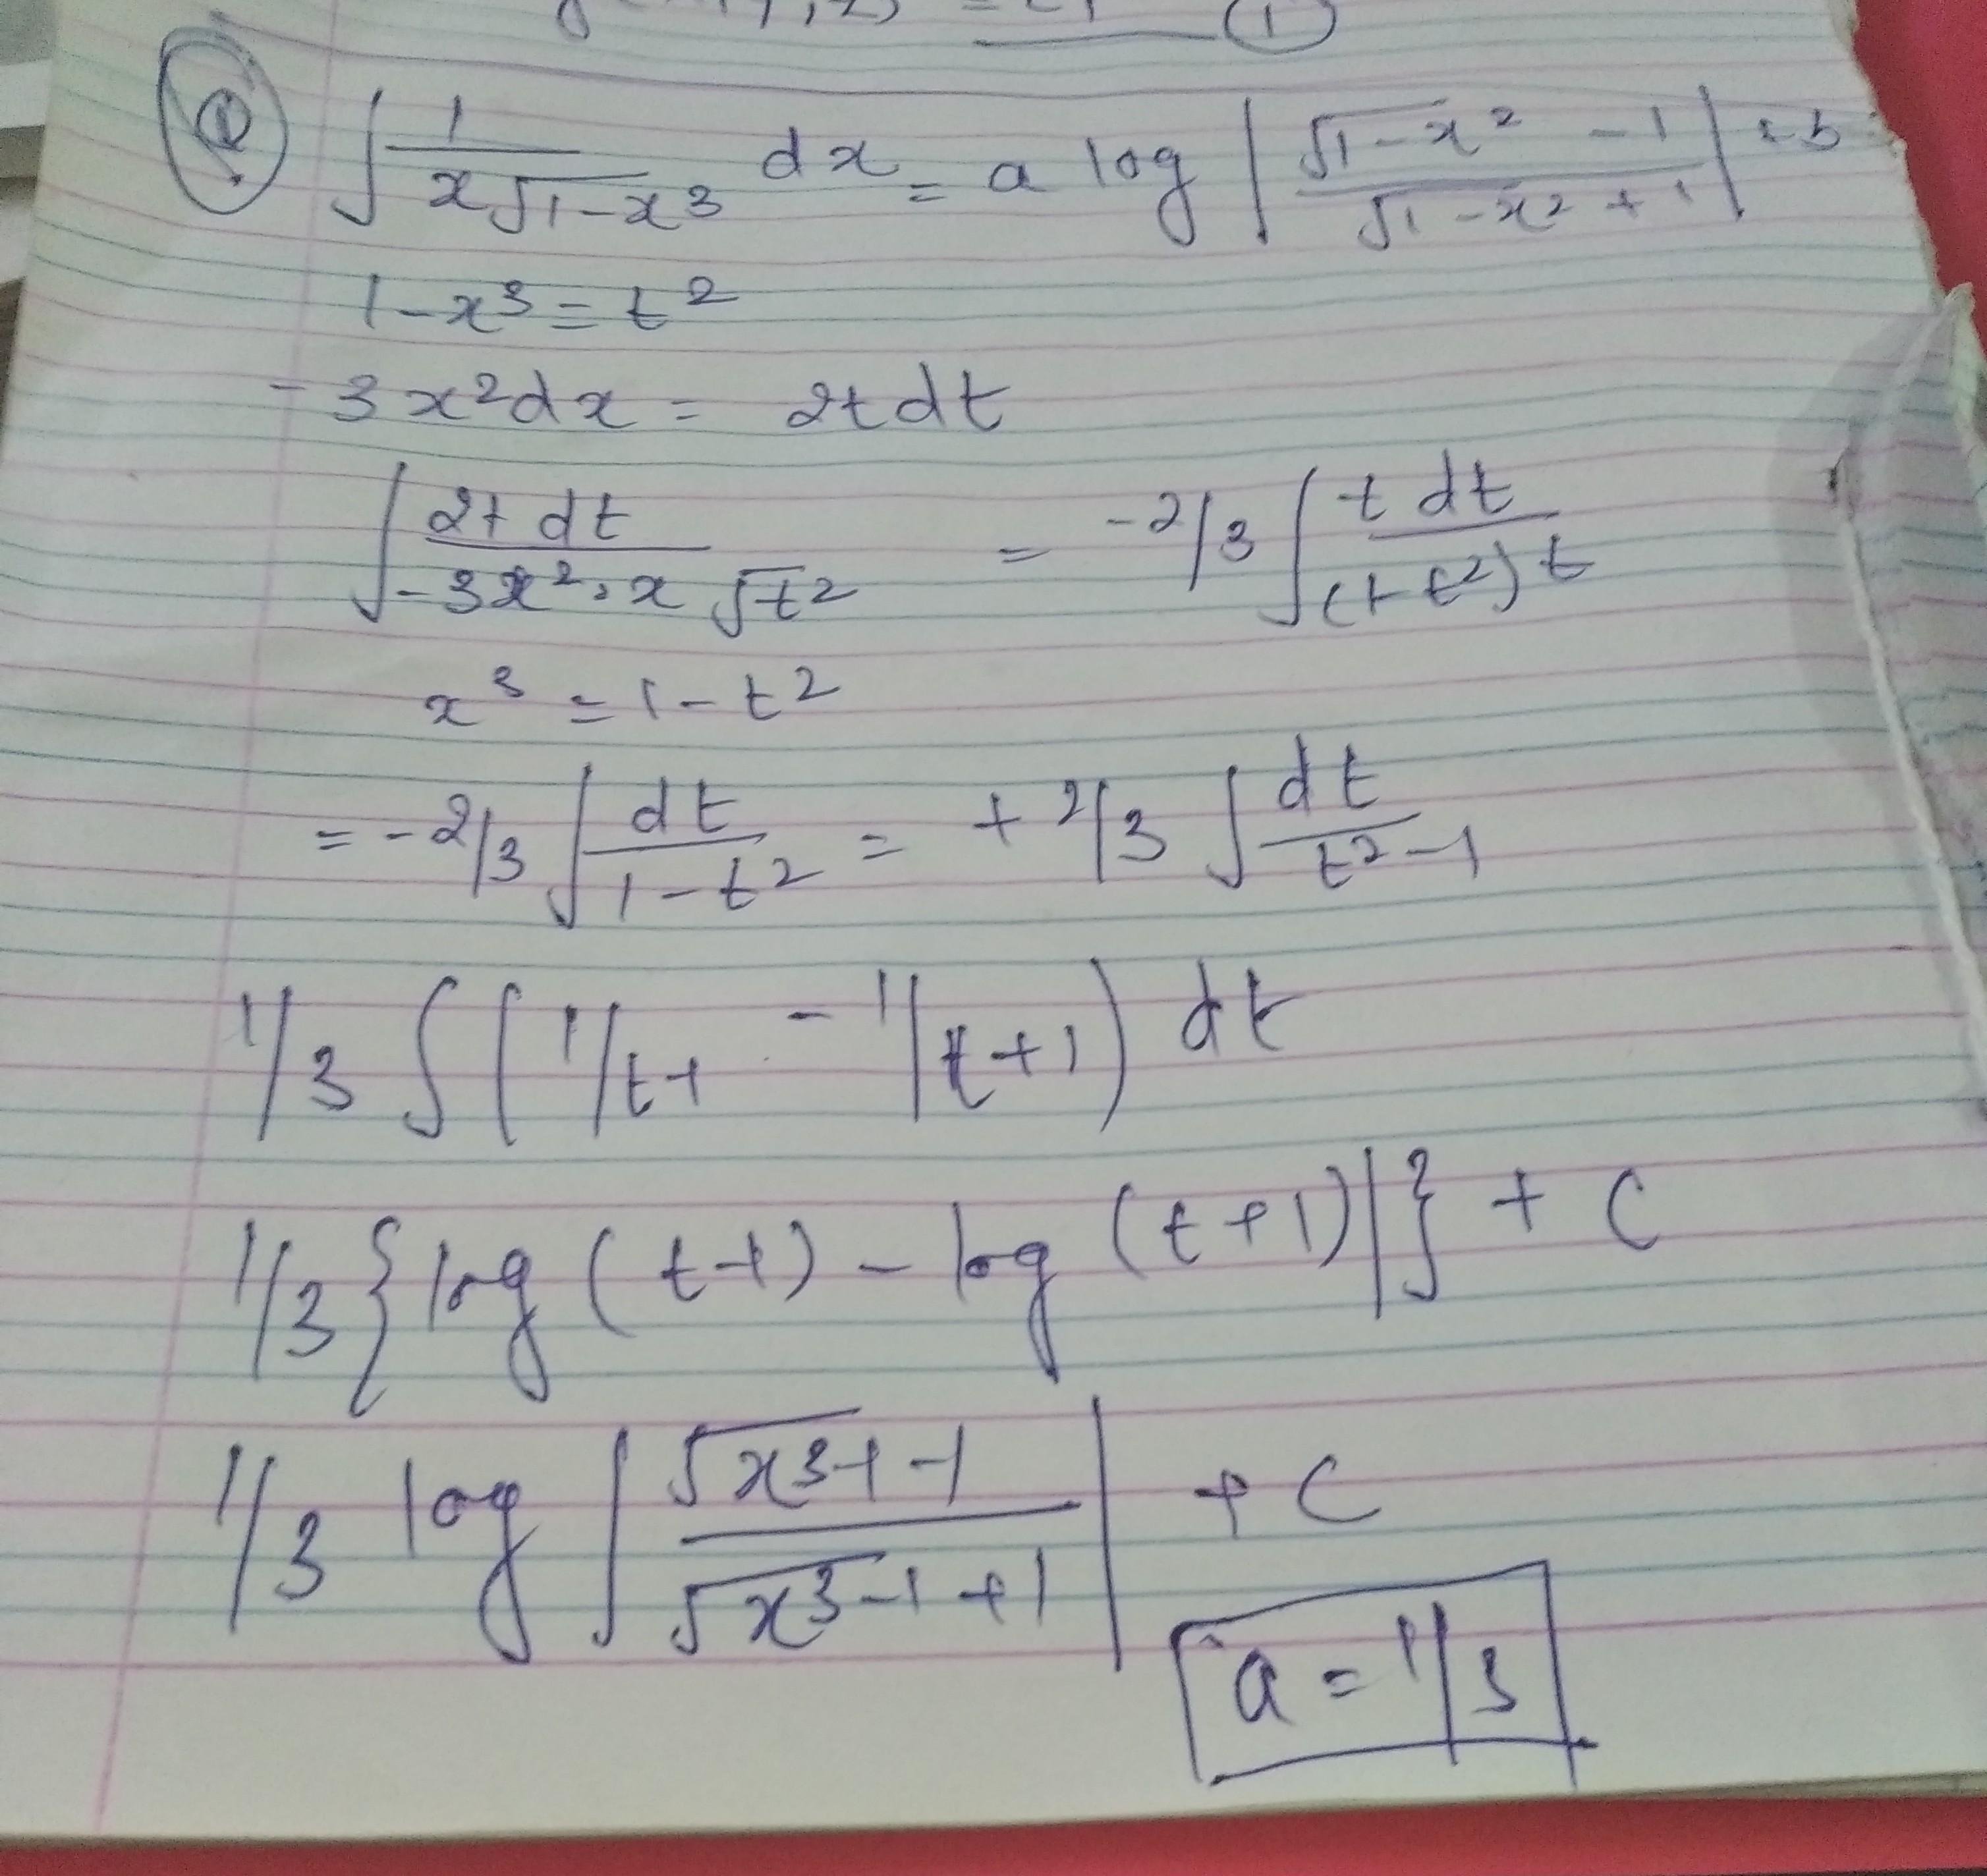 Q. ∫ 1/(x√1-x3) dx = a log |(√1-x2 - 1)/(√1-x2 + 1)| + b
1-x3 = t2
-3x2dx = 2tdt
∫ 2t dt/(-3x2·x √t2) = -2/3 ∫ t dt/((1-t2)t)
x3 = 1-t2
= -2/3 ∫ dt/(1-t2) = +2/3 ∫ dt/(t2-1)
1/3 ∫ (1/t-1 - 1/t+1) dt
1/3 { log (t-1) - log (t+1)| } + C
1/3 log |(√x3-1 -1)/(√x3-1 +1)| + C
a = 1/3